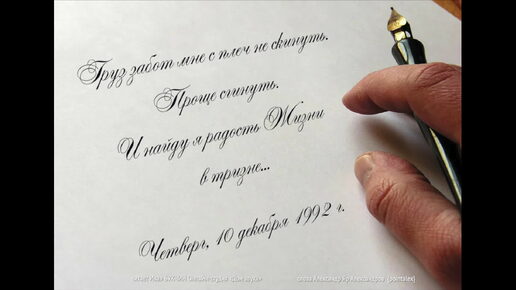 Груз забот мне с плеч не скинуть.
Проще сгинуть.
И найду я радость Жизни
в тризне...
Четверг, 10 декабря 1992 г.
читает Иван
слова Александр